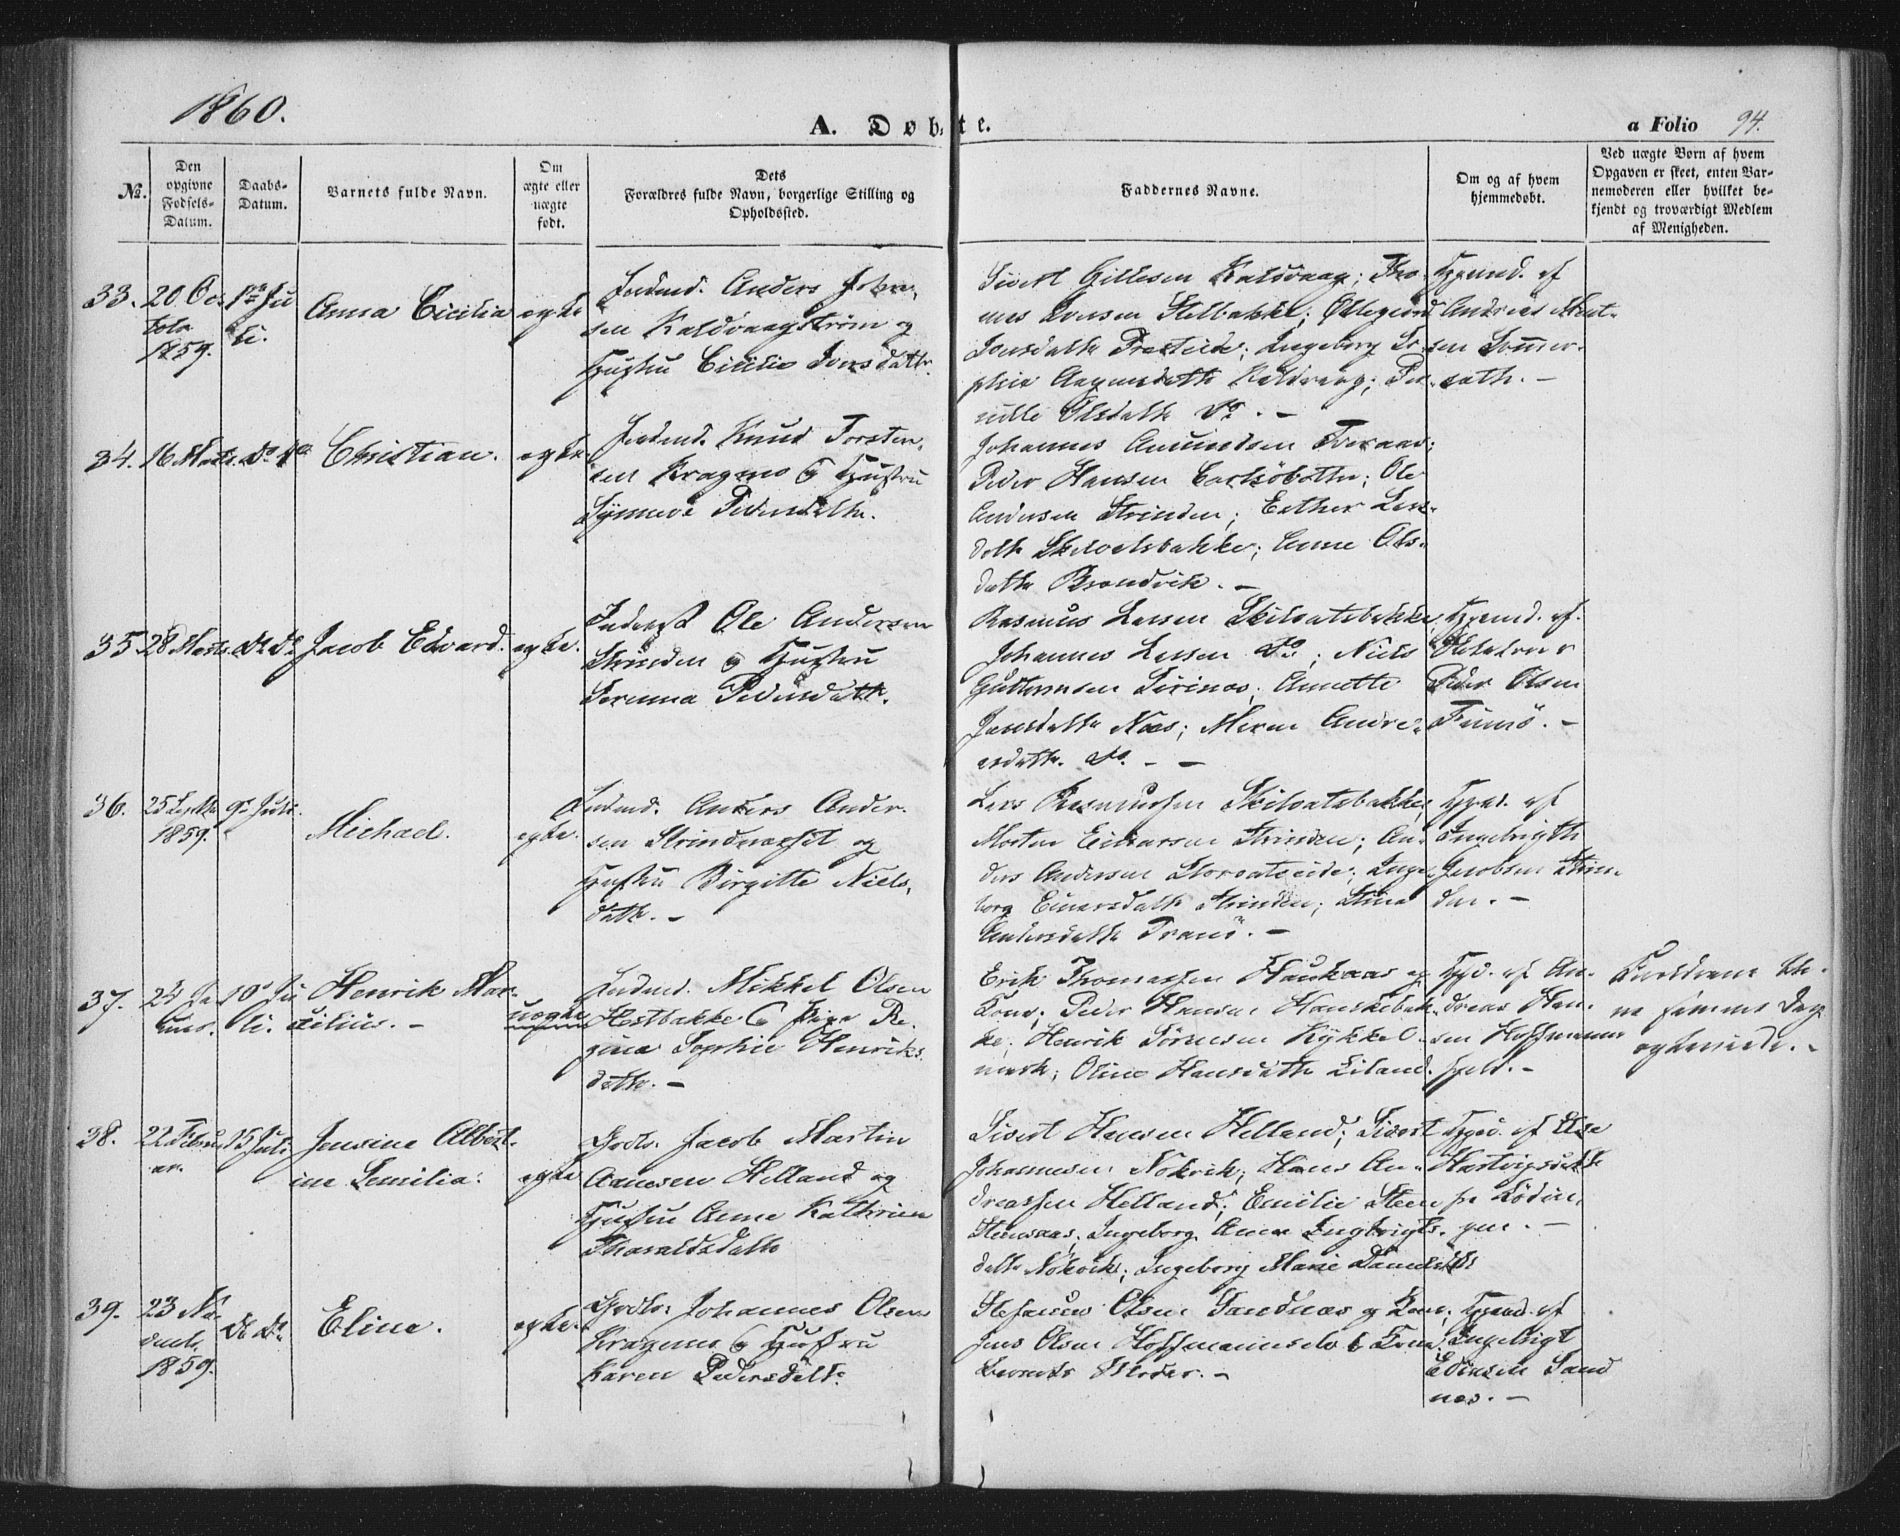 1860.
A. Døbte.
a Folio 94.
No.
Den opgivne Fødsels-Datum.
Daabs-Datum.
Barnets fulde Navn.
Om ægte eller uægte født.
Dets Forældres fulde Navn, borgerlige Stilling og Opholdssted.
Faddernes Navne.
Om og af hvem hjemmedøbt.
Ved uægte Børn af hvem Opgaven er skeet, enten Barnemoderen eller hvilket bekjendt og troværdigt Medlem af Menigheden.
33.
20 Oc
tobr
1859.
1ste Ju
li.
Anna Cicilia
egte
Indmd. Anders Johan-
sen Kaldvaagstrøm og
Hustru Cicilie Jonsdatr.
Sivert Gillesen Kaldvaag; Tho-
mas Stelbakke;
Jonsdatter; Ingeborg So-
phie Aagensdatter Kaldvaag; Per-
nille Olsdatter Do. -
Hjemd. af
Andreas
sen Sommer-
sæth. -
34.
16 Marts
Do Do
Christian.
egte
Indmd. Knud Torsten-
sen Kragnes og Hustru
Synneve Pedersdatter.
Johannes Amundsen
Peder Hansen; Ole
Andersen Strinden; Esther Lars-
datter Skilvatsbakke; Anne Ols-
datter Brandvik. -
35
28 Marts
Do Do
Jacob Edvard.
egte.
Inderst Ole Andersen
Strinden og Hustru
Pedersdatter.
Rasmus Larsen Skilvatsbakke
Johannes Larsen Do; Niels
Guttormsen; Annette
Jensdatter Næs; Andre-
asdatter. Do. - -
Hjemd. af
Peder Olsen
-
36.
25 Septbr
1859.
9de Juli.
Michael.
egte.
Indmd. Anders Ander-
sen og
Hustru Birgitte Niels-
datter. -
Lars Rasmussen Skilvatsbakke;
Morten Einarsen Strinden; An-
ders Andersen; Inge-
borg Einarsdatter Strinden; Stina
Andersdatter Tranø. -
Hjmd. af
Ingebrigth
Jacobsen Strin-
den. -
37.
24 Ja
nuar.
10de Ju
li.
Henrik Mar-
cilius. -
uægte
Indmd. Mikkel Olsen
Hestbakke og Pige Re-
gina Sophie Henriks-
datter. -
Erik Thomassen Haukaas og
Kone; Peder Hansen Hanskebak-
ke; Henrik Kykkel-
mark; Oline Hansdatter Liland.
Hjd. af An-
dreas Han-
sen Hoffmanns-
Forældrene
ne samme Dag
egteviede. -
38.
22 Febru
ar.
15 Juli
Jensine Albert-
ine Semilia.
egte
Jacob Martin
Aanesen Helland og
Hustru Anne Kathrina
Tharaldsdatter
Sivert Hansen Helland; Sivert
Johannesen Nokvik; Hans An-
dreassen Helland; Emilie Steen
; Ingeborg Anna Ingbrigts-
datter Nokvik; Ingeborg Marie
Hjmd. af Else
Hartvigsdatter
fra Lødin-
gen. -
39.
23 No
vemb.
1859.
Do Do.
Eline.
egte.
Johannes Olsen
Kragenes og Hustru
Karen Pedersdatter
Stefanus Olsen Sandnæs og Kone;
Jens Olsen og Kone;
Barnets Moder. -
Hjemd. af
Ingebrigt
Edinsen Sand
næs. -